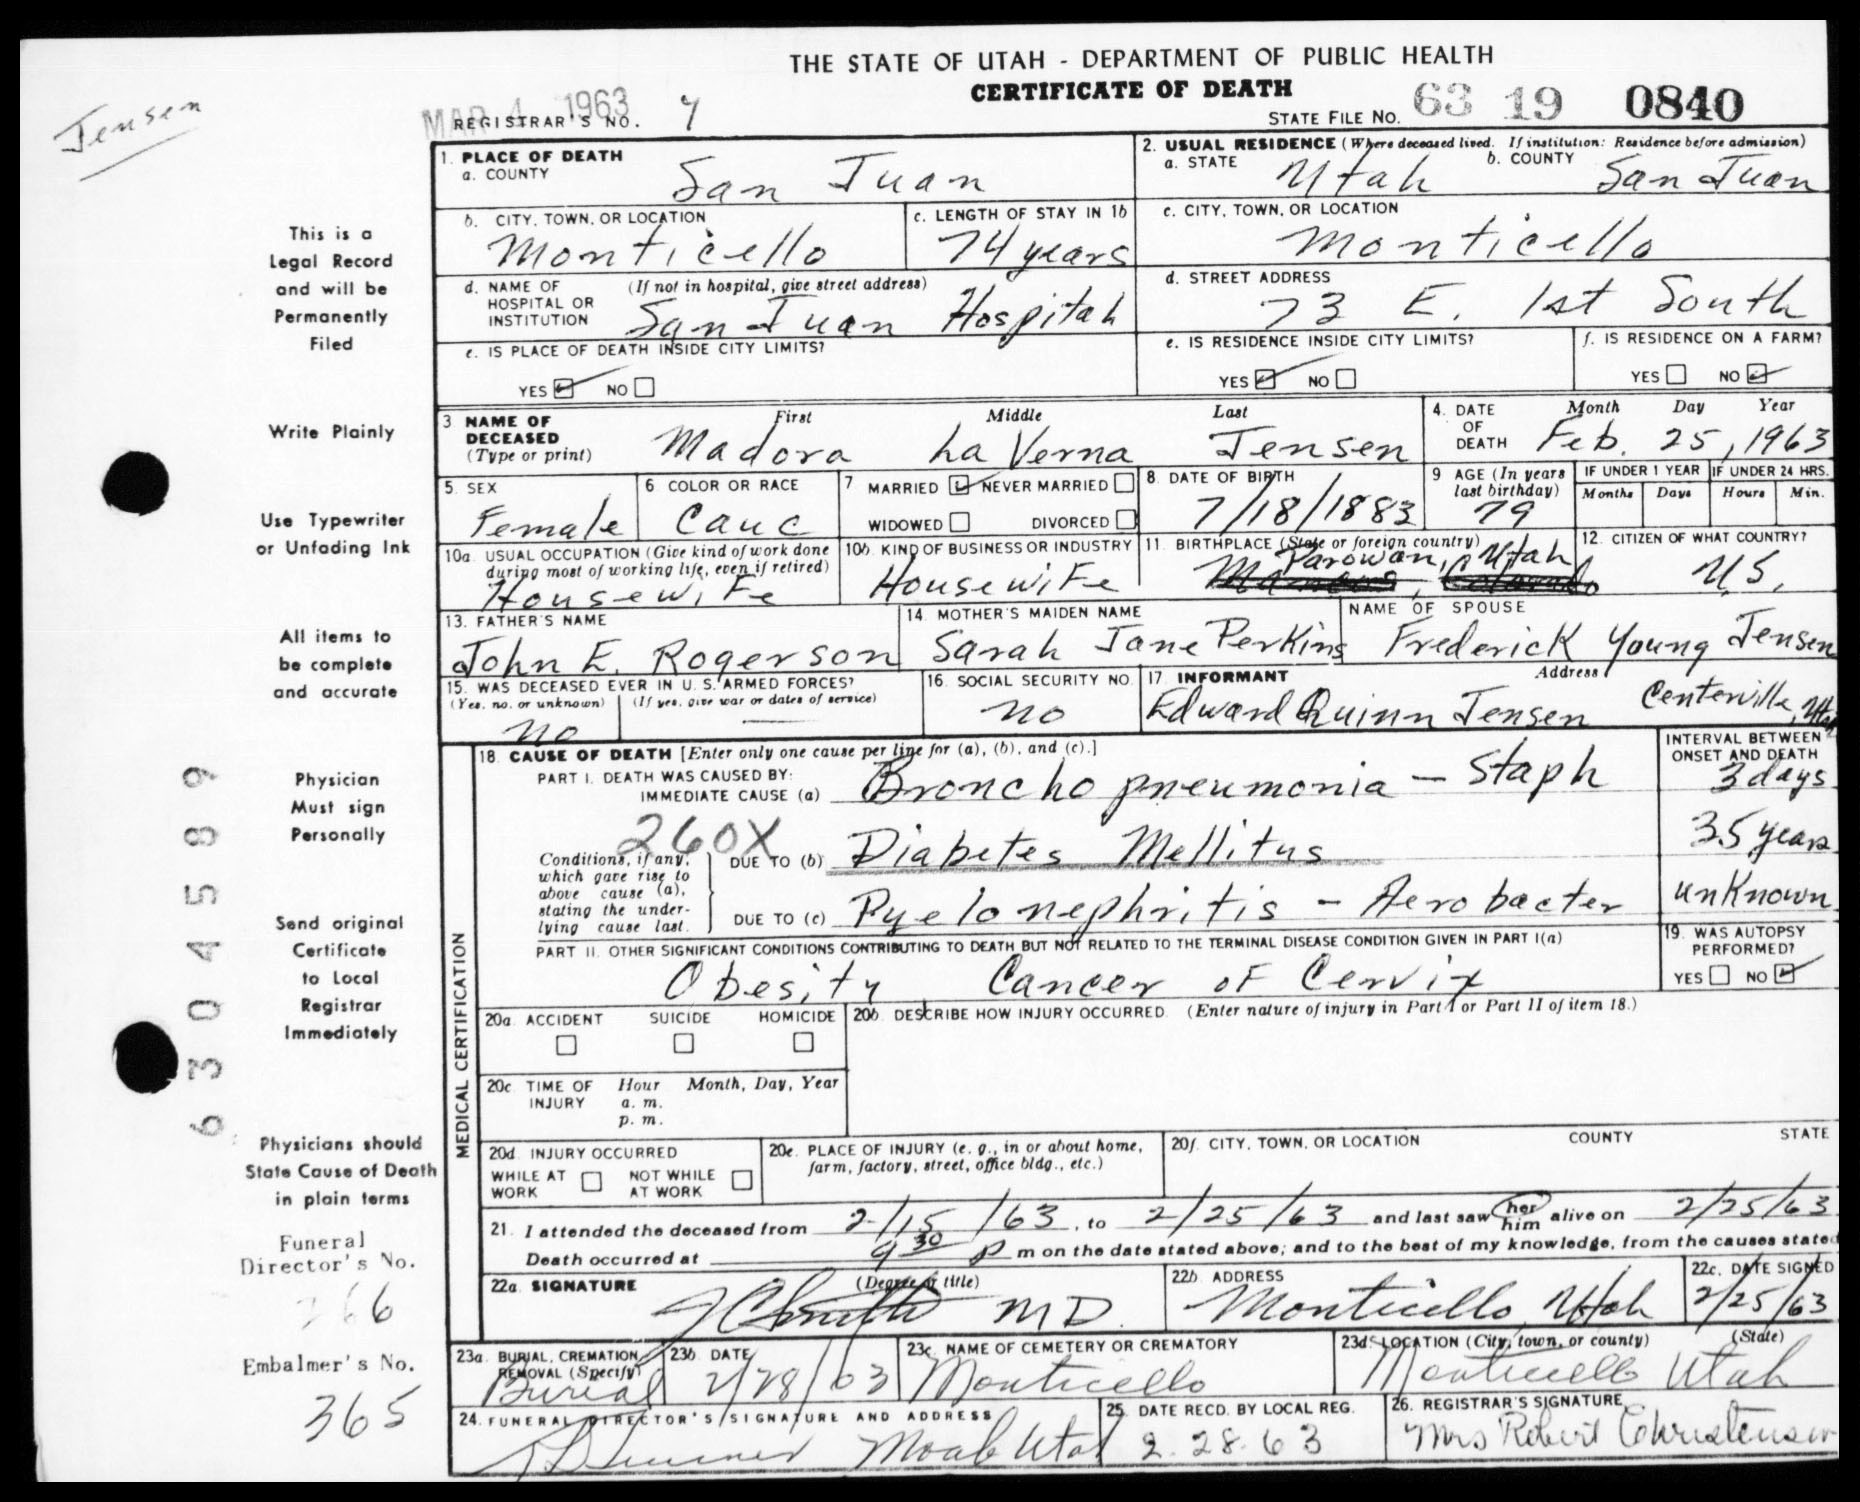 THE STATE OF UTAH - DEPARTMENT OF PUBLIC HEALTH
CERTIFICATE OF DEATH
Jensen
MAR 4 1963
REGISTRAR'S NO. 7
STATE FILE NO. 63 19 0840
1. PLACE OF DEATH
a. COUNTY San Juan
2. USUAL RESIDENCE (Where deceased lived. If institution: Residence before admission)
a. STATE Utah b. COUNTY San Juan
b. CITY, TOWN, OR LOCATION Monticello
c. LENGTH OF STAY IN 1b 74 years
c. CITY, TOWN, OR LOCATION Monticello
d. NAME OF HOSPITAL OR INSTITUTION (If not in hospital, give street address) San Juan Hospital
d. STREET ADDRESS 73 E. 1st South
e. IS PLACE OF DEATH INSIDE CITY LIMITS?
YES NO
e. IS RESIDENCE INSIDE CITY LIMITS?
YES NO
f. IS RESIDENCE ON A FARM?
YES NO
3 NAME OF DECEASED (Type or print)
First Middle Last
Madora La Verna Jensen
4. DATE OF DEATH Month Day Year
Feb. 25, 1963
5. SEX Female
6 COLOR OR RACE Cauc
7 MARRIED NEVER MARRIED
WIDOWED DIVORCED
8. DATE OF BIRTH 7/18/1883
9 AGE (In years last birthday) 79
IF UNDER 1 YEAR Months Days
IF UNDER 24 HRS. Hours Min.
10a. USUAL OCCUPATION (Give kind of work done during most of working life, even if retired) Housewife
10b. KIND OF BUSINESS OR INDUSTRY Housewife
11. BIRTHPLACE (State or foreign country) Parowan, Utah
12. CITIZEN OF WHAT COUNTRY? U.S.
13. FATHER'S NAME John E. Rogerson
14. MOTHER'S MAIDEN NAME Sarah Jane Perkins
NAME OF SPOUSE Frederick Young Jensen
15. WAS DECEASED EVER IN U. S. ARMED FORCES?
(Yes, no, or unknown) (If yes, give war or dates of service)
no
16. SOCIAL SECURITY NO. no
17. INFORMANT Address
Edward Quinn Jensen Centerville, Utah
18. CAUSE OF DEATH [Enter only one cause per line for (a), (b), and (c).]
INTERVAL BETWEEN ONSET AND DEATH
PART I. DEATH WAS CAUSED BY:
IMMEDIATE CAUSE (a) Bronchopneumonia - Staph 3 days
260X
Conditions, if any, which gave rise to above cause (a), stating the underlying cause last.
DUE TO (b) Diabetes Mellitus 35 years
DUE TO (c) Pyelonephritis - Aerobacter unknown
PART II. OTHER SIGNIFICANT CONDITIONS CONTRIBUTING TO DEATH BUT NOT RELATED TO THE TERMINAL DISEASE CONDITION GIVEN IN PART I(a)
Obesity Cancer of Cervix
19. WAS AUTOPSY PERFORMED?
YES NO
MEDICAL CERTIFICATION
20a. ACCIDENT SUICIDE HOMICIDE
20b. DESCRIBE HOW INJURY OCCURRED. (Enter nature of injury in Part I or Part II of item 18.)
20c. TIME OF INJURY Hour Month, Day, Year
a. m.
p. m.
20d. INJURY OCCURRED
WHILE AT WORK NOT WHILE AT WORK
20e. PLACE OF INJURY (e. g., in or about home, farm, factory, street, office bldg., etc.)
20f. CITY, TOWN, OR LOCATION COUNTY STATE
21. I attended the deceased from 2/15/63, to 2/25/63 and last saw her him alive on 2/25/63
Death occurred at 9 30 P m on the date stated above; and to the best of my knowledge, from the causes stated
22a. SIGNATURE (Degree or title)
J C Smith MD.
22b. ADDRESS Monticello, Utah
22c. DATE SIGNED 2/25/63
23a. BURIAL, CREMATION, REMOVAL (Specify) Burial
23b. DATE 2/28/63
23c. NAME OF CEMETERY OR CREMATORY Monticello
23d. LOCATION (City, town, or county) (State)
Monticello Utah
24. FUNERAL DIRECTOR'S SIGNATURE AND ADDRESS
Moab Utah
25. DATE RECD. BY LOCAL REG. 2.28.63
26. REGISTRAR'S SIGNATURE
Mrs Robert Christensen
This is a
Legal Record
and will be
Permanently
Filed
Write Plainly
Use Typewriter
or Unfading Ink
All items to
be complete
and accurate
Physician
Must sign
Personally
Send original
Certificate
to Local
Registrar
Immediately
Physicians should
State Cause of Death
in plain terms
Funeral
Director's No.
266
Embalmer's No.
365
630 45 89